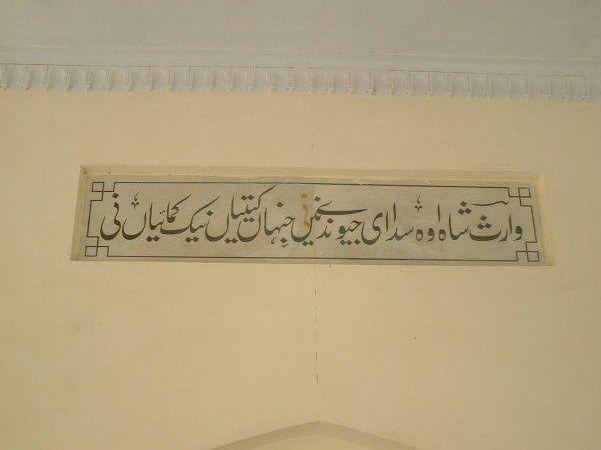 وارث شاہ اوہ سدا ای جیوندے نیں نی جنہاں کیتیاں نیک کمائیاں نی